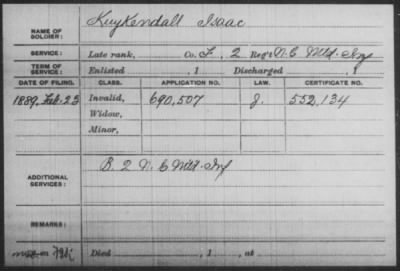 NAME OF SOLDIER: Kuykendall Isaac
SERVICE: Late rank, Co. F, 2 Reg't N.C. Mtd. Inf
TERM OF SERVICE: Enlisted , 1 Discharged , 1
DATE OF FILING. CLASS. APPLICATION NO. LAW. CERTIFICATE NO.
1889, Feb. 23 Invalid, 690,507 J. 552,134
Widow,
Minor,
ADDITIONAL SERVICES: B. 2 N.C. Mtd. Inf
REMARKS:
Died , 1 , at